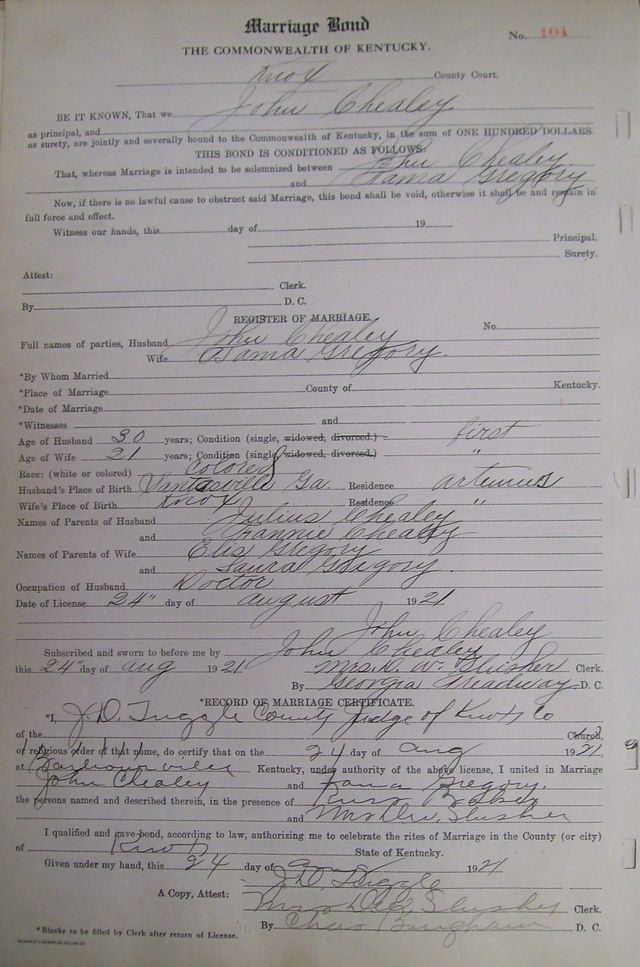 Marriage Bond
THE COMMONWEALTH OF KENTUCKY.
No. 104
Knox County Court.
BE IT KNOWN, That we John Chealey
as principal, and
as surety, are jointly and severally bound to the Commonwealth of Kentucky, in the sum of ONE HUNDRED DOLLARS
THIS BOND IS CONDITIONED AS FOLLOWS:
That, whereas Marriage is intended to be solemnized between John Chealey
and Gregory
Now, if there is no lawful cause to obstruct said Marriage, this bond shall be void, otherwise it shall be and remain in
full force and effect.
Witness our hands, this day of 19
Principal.
Surety.
Attest:
Clerk.
By D. C.
REGISTER OF MARRIAGE.
No.
Full names of parties, Husband John Chealey
Wife Gregory.
*By Whom Married
*Place of Marriage County of Kentucky.
*Date of Marriage
*Witnesses and
Age of Husband 30 years; Condition (single, widowed, divorced.) first
Age of Wife 21 years; Condition (single, widowed, divorced.) "
Race: (white or colored) Colored
Husband's Place of Birth Ga. Residence artemus
Wife's Place of Birth Knox Residence "
Names of Parents of Husband Julius Chealey
and Fannie Chealey
Names of Parents of Wife Gregory
and Laura Gregory.
Occupation of Husband Doctor
Date of License 24" day of august 1921
John Chealey
Subscribed and sworn to before me by John Chealey
this 24" day of aug 1921 Mrs. D. W. Slusher Clerk.
By Georgia Treadway D. C.
*RECORD OF MARRIAGE CERTIFICATE.
*I, J. D. Tuggle County Judge of Knox Co
of the Church,
or religious order of that name, do certify that on the 24 day of aug 1921
at Barbourville Kentucky, under authority of the above license, I united in Marriage
John Chealey and Gregory.
the persons named and described therein, in the presence of
and Mrs D.W. Slusher
I qualified and gave bond, according to law, authorizing me to celebrate the rites of Marriage in the County (or city)
of Knox State of Kentucky.
Given under my hand, this 24 day of 1921
J. D. Tuggle
A Copy, Attest: Mrs D.W. Slusher Clerk.
By Chas Bingham D. C.
*Blanks to be filled by Clerk after return of License.